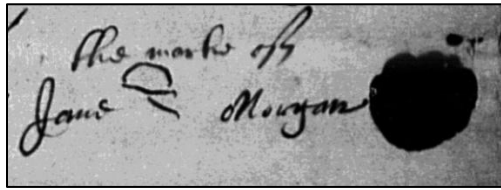 the marke of
Jane Morgan